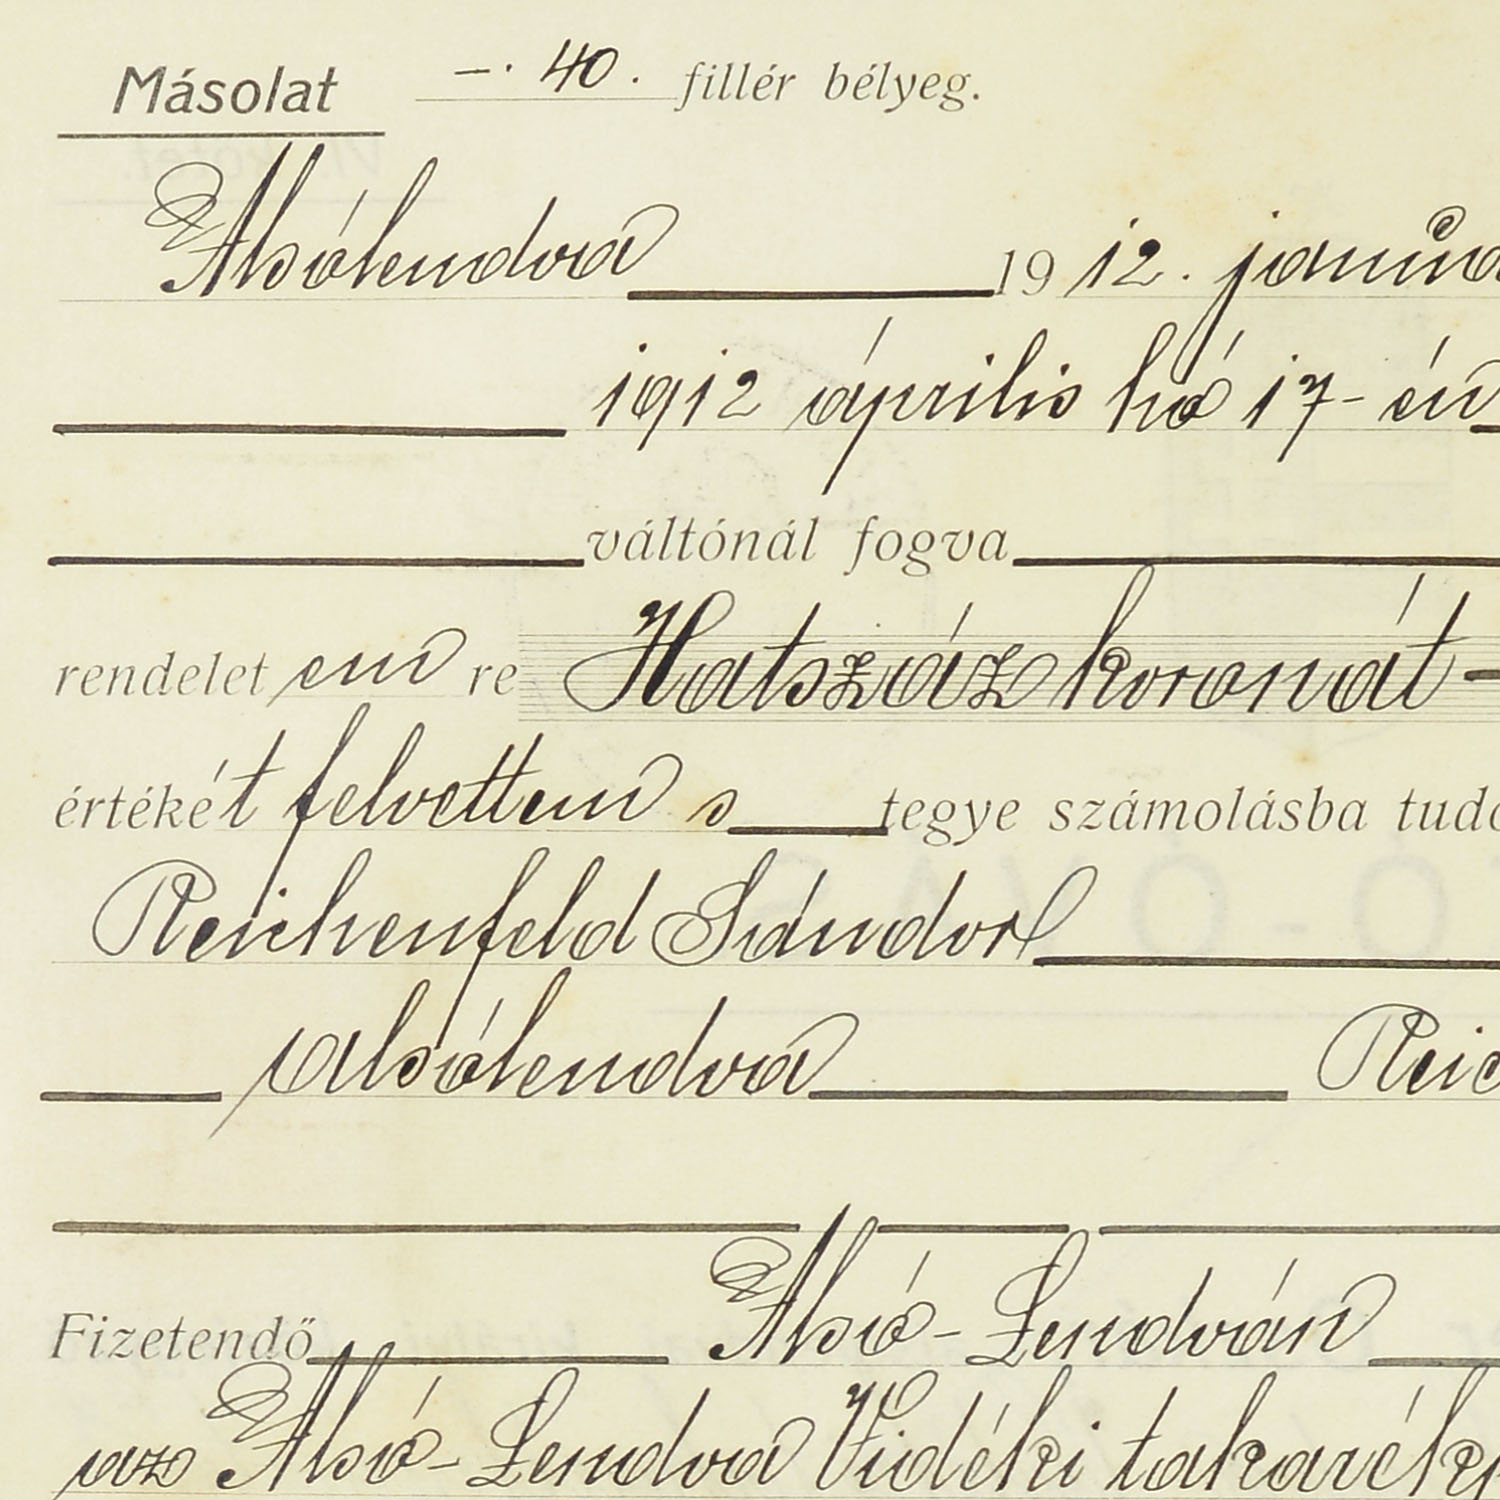 Másolat —. 40. fillér bélyeg.
Alsólendva 1912. januá
1912 április hó 17-én
váltónál fogva
rendelet em re Hatszáz koronát -
értékét felvettem s tegye számolásba tudó
Reichenfeld Sándor
Alsólendva Reic
Fizetendő Alsó-Lendván
az Alsó-Lendva Vidéki takarékp